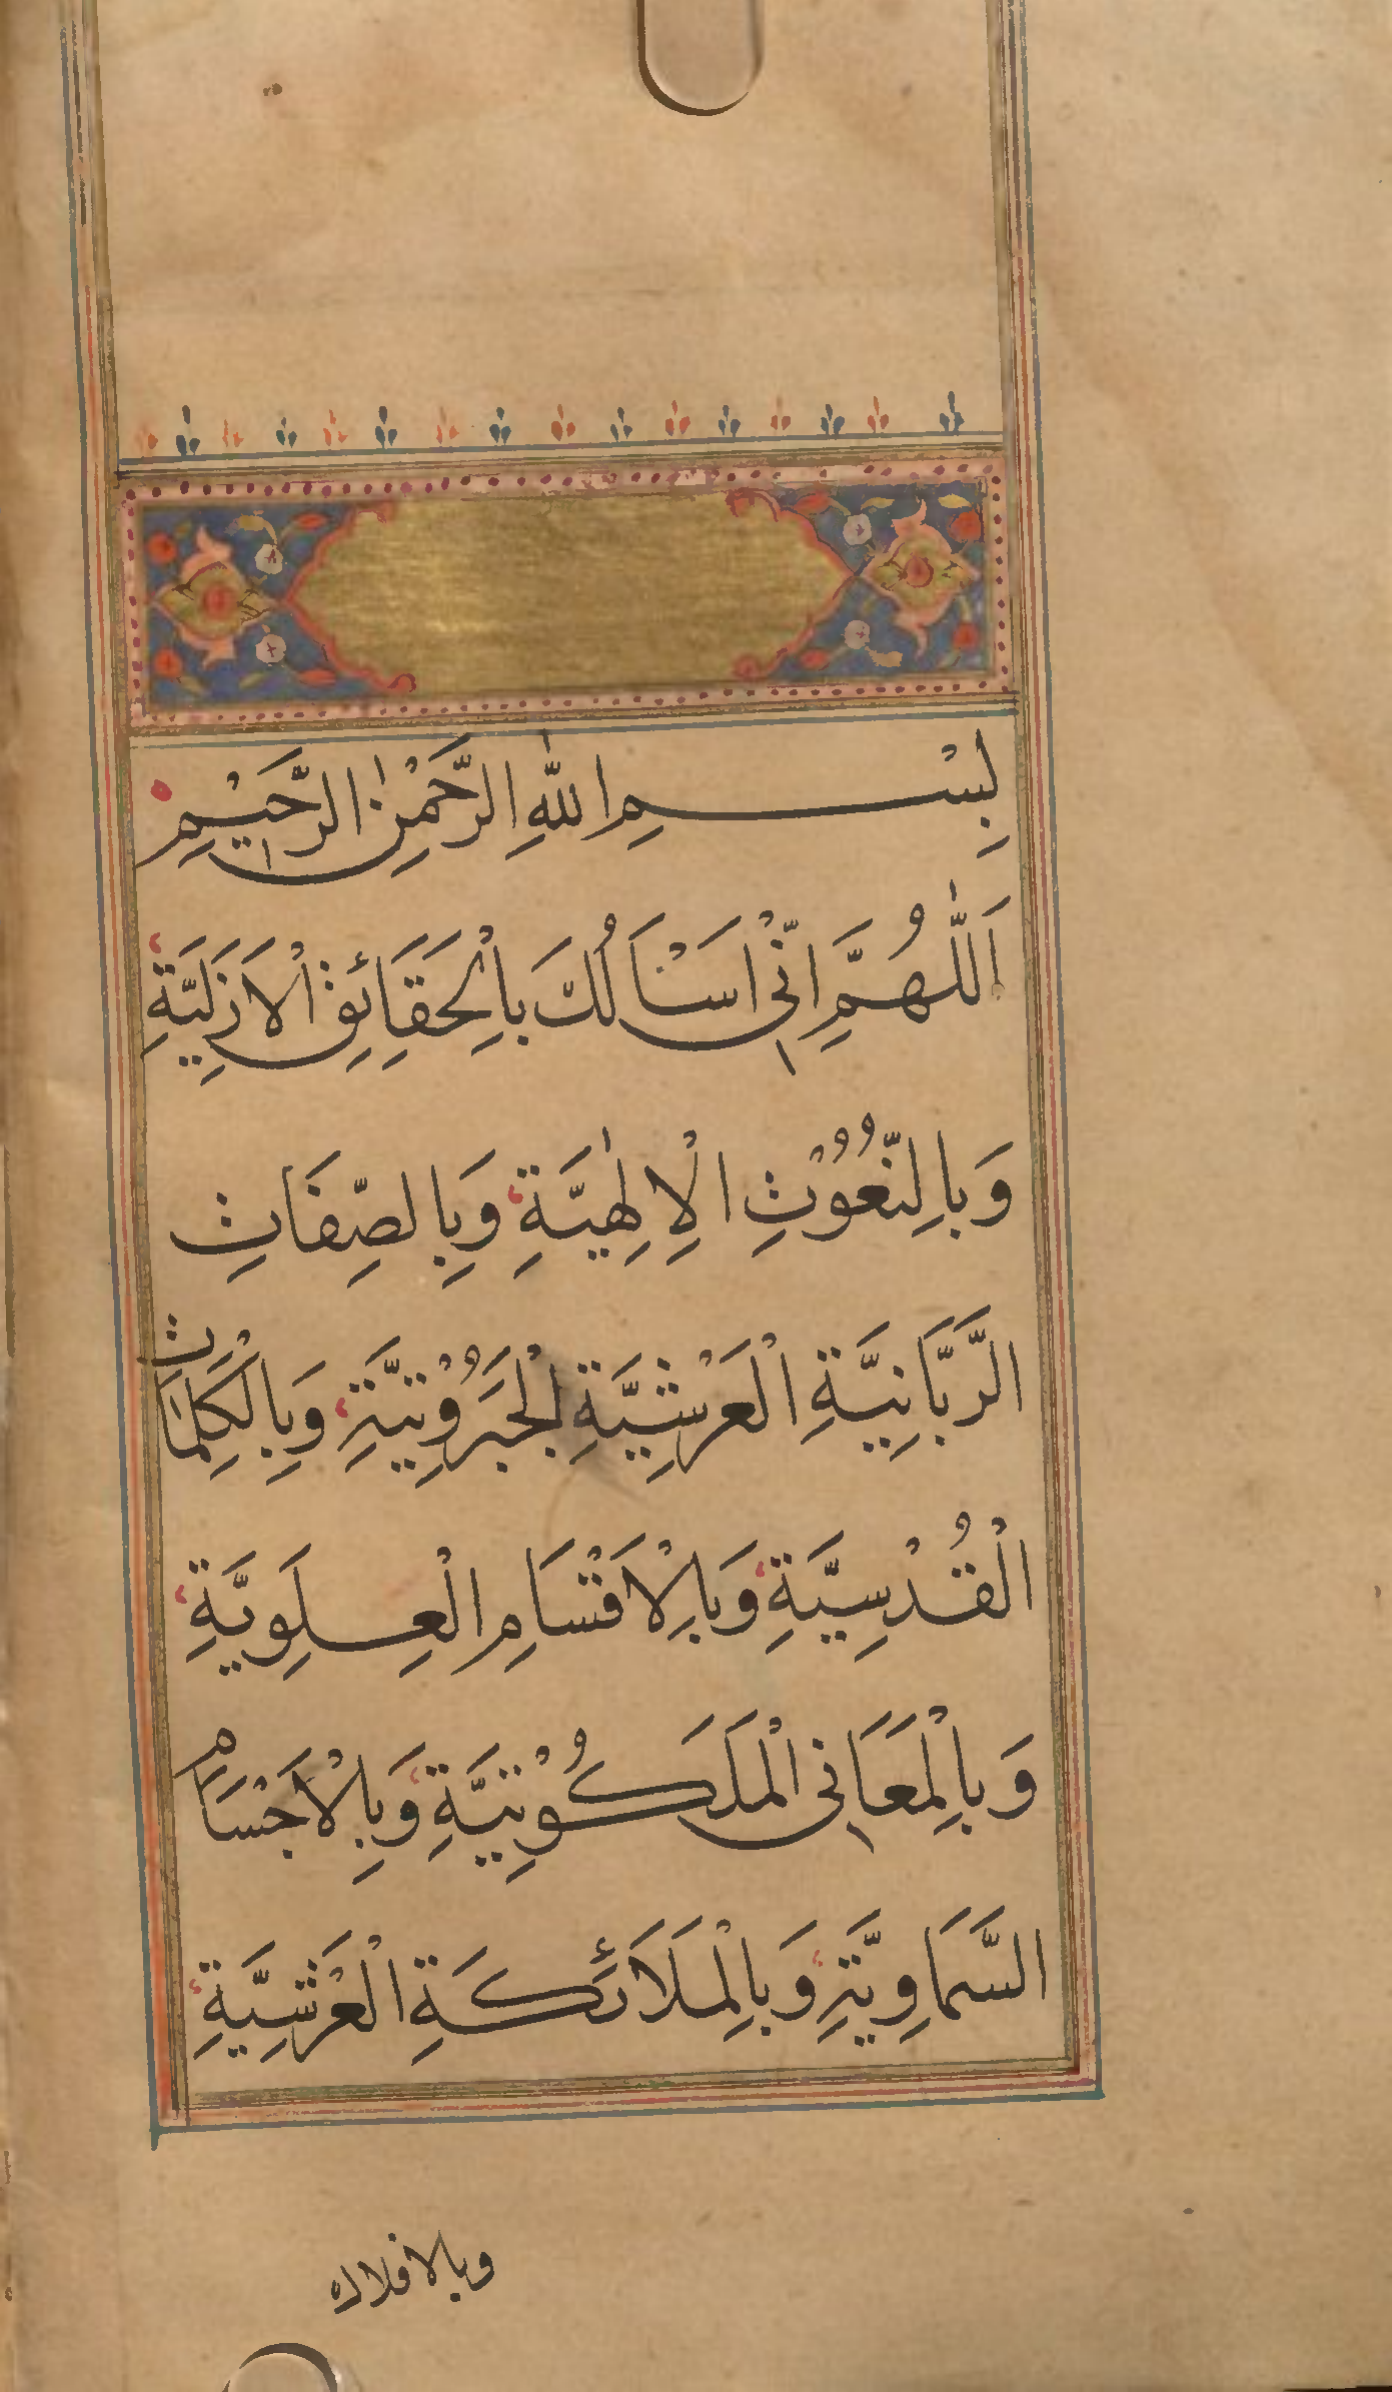 بِسْمِ اللّٰهِ الرَّحْمٰنِ الرَّحِيْمِ
اَللّٰهُمَّ اِنّٰى اَسْئَالُكَ بِالْحَقَائِقِ الْاَزَلِيَّةِ
وَبِالنُّعُوْتِ الْاِلٰهِيَّةِ وَبِالصِّفَاتِ
الرَّبَّانِيَّةِ الْعَرْشِيَّةِ الْجَبَرُوْتِيَّةِ وَبِالْكَلِمَاتِ
الْقُدْسِيَّةِ وَبِالْاَقْسَامِ الْعِلَوِيَّةِ
وَبِالْمَعَانِى الْمَلَكُوْتِيَّةِ وَبِالْاَجْسَامِ
السَّمَاوِيَّةِ وَبِالْمَلَائِكَةِ الْعَرْشِيَّةِ
وبالافلاك